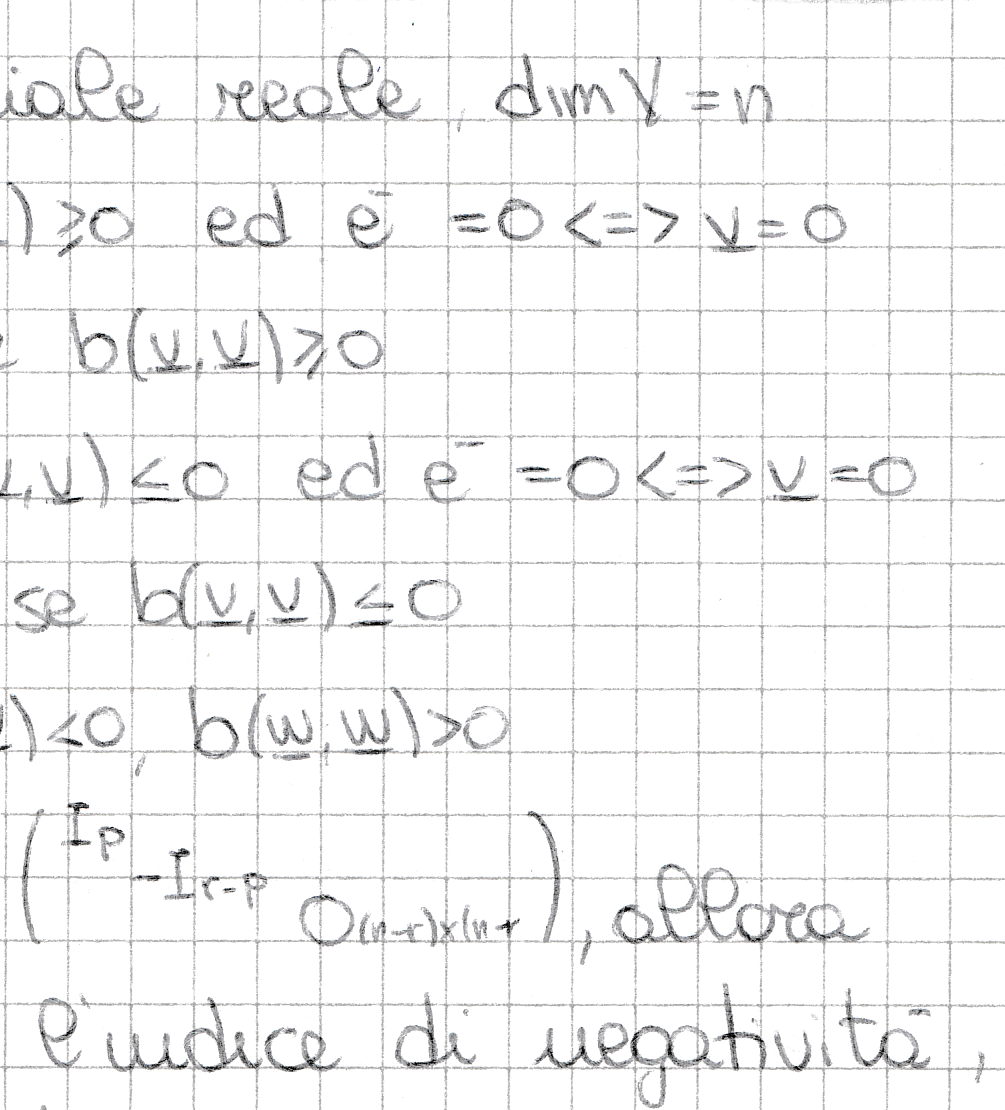 iale reale, dim V = n
) ≥ 0 ed è = 0 <=> v = 0
b(v, v) ≥ 0
v, v) ≤ 0 ed è = 0 <=> v = 0
se b(v, v) ≤ 0
) < 0, b(w, w) > 0
( Ip -Ir-p O(n-r)x(n-r ), allora
l'indice di negatività,